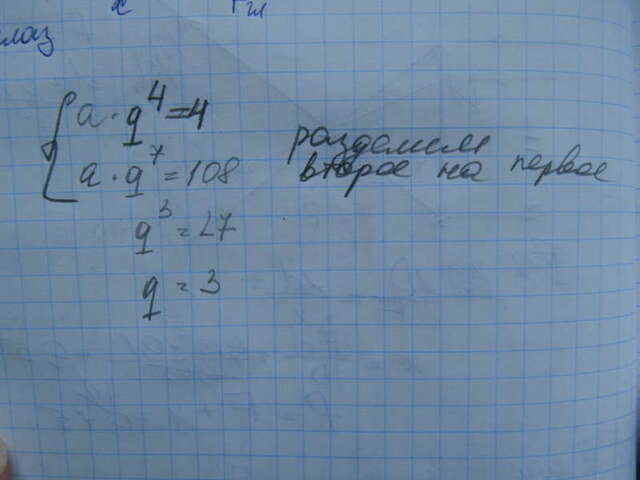 a · q^4 = 4
a · q^7 = 108
разделим
второе на первое
q^3 = 27
q = 3